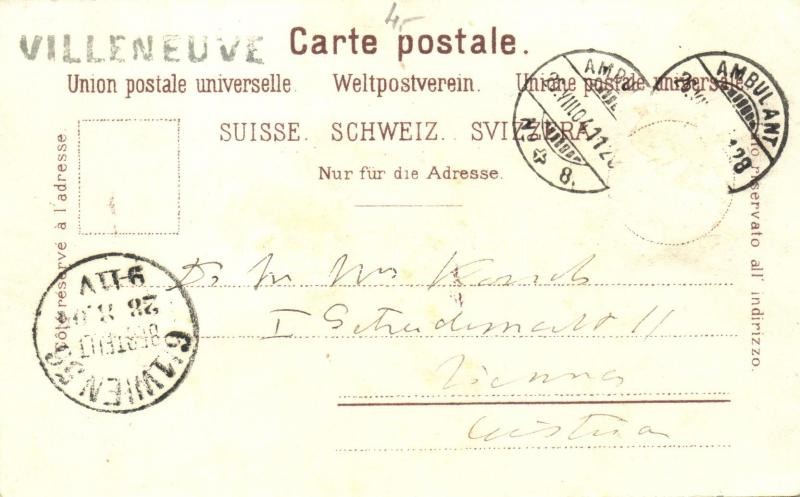 4.-
VILLENEUVE
Carte postale.
Union postale universelle. Weltpostverein. Unione postale universale
SUISSE. SCHWEIZ. SVIZZERA.
Nur für die Adresse.
Côté réservé à l'adresse.
riservato all' indirizzo.
AMBULANT
VIII 04
No 8.
AMBULANT
6/1 WIEN
BESTELLT
28
VII
Dr
I 11
Vienna
Austria